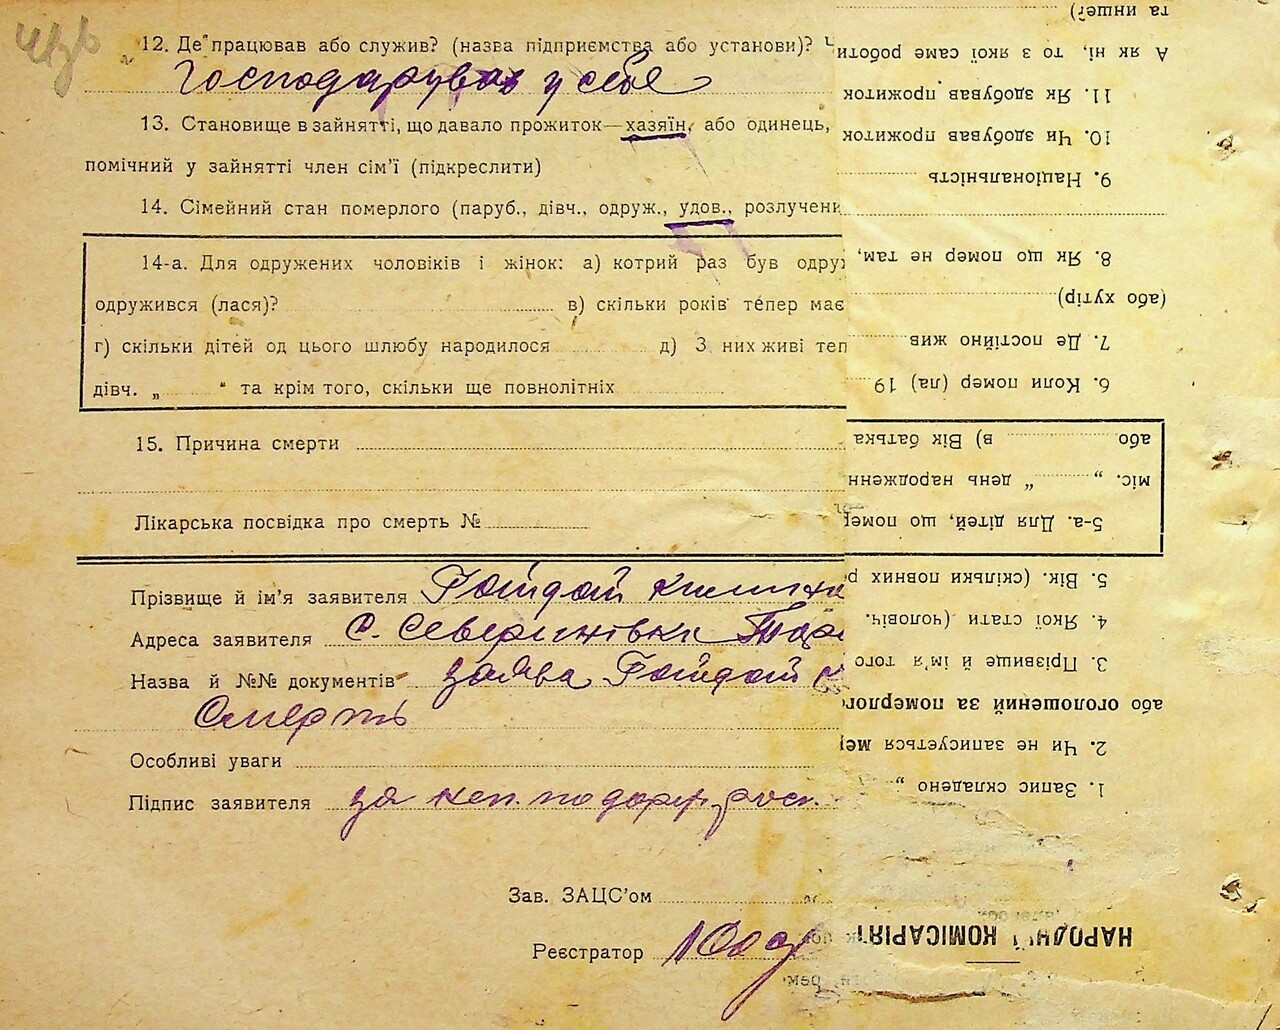 12. Де працював або служив? (назва підприємства або установи)?
Господарував у себе
13. Становище в зайнятті, що давало прожиток—хазяїн, або одинець,
помічний у зайнятті член сім’ї (підкреслити)
14. Сімейний стан померлого (паруб., дівч., одруж., удов., розлучени
14-а. Для одружених чоловіків і жінок: а) котрий раз був одру
одружився (лася)? в) скільки років тепер має
г) скільки дітей од цього шлюбу народилося д) З них живі теп
дівч. „ “ та крім того, скільки ще повнолітніх
15. Причина смерти
Лікарська посвідка про смерть №
Прізвище й ім’я заявителя Гайдай
Адреса заявителя с. Северинівка
Назва й №№ документів заява Гайдай
Смерть
Особливі уваги
Підпис заявителя за
Зав. ЗАЦС’ом
Реєстратор
НАРОДН КОМІСАРІЯТ
1. Запис складено „
2. Чи не записується мер
або оголошений за померлог
3. Прізвище й ім’я того
4. Якої стати (чоловіч.
5. Вік. (скільки повних р
5-а. Для дітей, що помер
міс. „ “ день народженн
або в) Вік батька
6. Коли помер (ла) 19
7. Де постійно жив
(або хутір)
8. Як що помер не там,
9. Національність
10. Чи здобував прожиток
11. Як здобував прожиток
А як ні, то з якої саме роботи
та инше?)